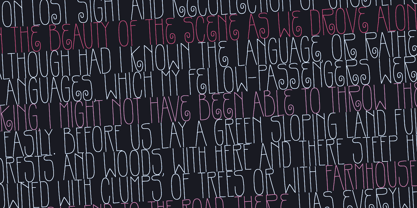 ON LOST SIGHT AND
THE BEAUTY OF THE SCENE AS WE DROVE ALON
ALTHOUGH HAD I KNOWN THE LANGUAGE OR RATHE
LANGUAGES WHICH MY FELLOW-PASSENGERS WER
KING MIGHT NOT HAVE BEEN ABLE TO THROW THE
EASILY. BEFORE US LAY A GREEN SLOPING LAND FUL
ORESTS AND WOODS, WITH HERE AND THERE STEEP H
WNED WITH CLUMPS OF TREES OR WITH FARMHOUSE
THE ROAD. THERE WAS EVERYW